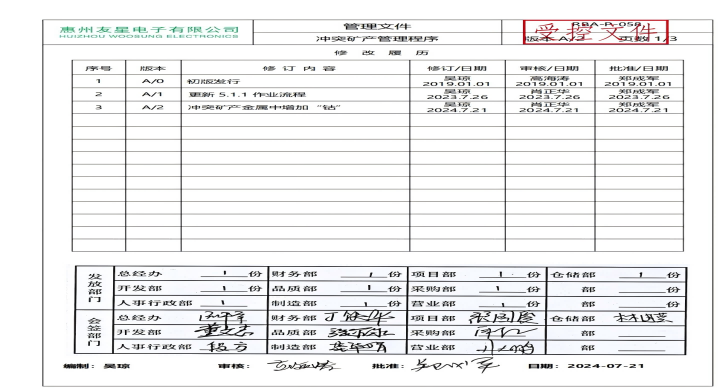 惠州友星电子有限公司
HUIZHOU WOOSUNG ELECTRONICS
管理文件
冲突矿产管理程序
RBA-P-058
版本 A/2 页数 1/3
受控文件
修 改 履 历
序号 版本 修 订 内 容 修订/日期 审核/日期 批准/日期
1 A/0 初版发行 吴琼 2019.01.01 高海涛 2019.01.01 郑成军 2019.01.01
2 A/1 更新 5.1.1 作业流程 吴琼 2023.7.26 肖正华 2023.7.26 郑成军 2023.7.26
3 A/2 冲突矿产金属中增加“钴” 吴琼 2024.7.21 肖正华 2024.7.21 郑成军 2024.7.21
发放部门
总经办 1 份 财务部 1 份 项目部 1 份 仓储部 1 份
开发部 1 份 品质部 1 份 采购部 1 份 部 份
人事行政部 1 制造部 1 份 营业部 1 份 部 份
会签部门
总经办 财务部 项目部 仓储部
开发部 品质部 采购部 部
人事行政部 制造部 营业部 部
编制：吴琼 审核： 批准： 日期：2024-07-21